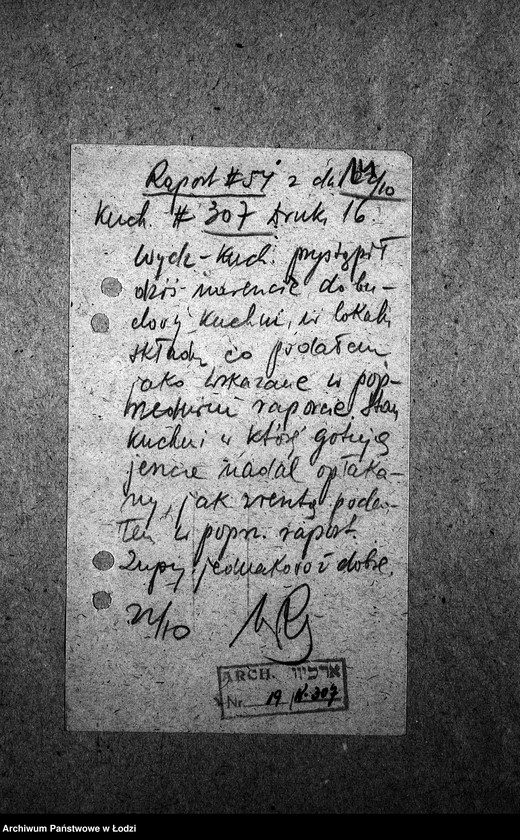 Raport # 54 z dn. 22/10
Kuch. # 307 Druk. 16.
Wydz-Kuch. przystąpił
dziś nareszcie do bu-
dowy kuchni, w lokalu
składu co podałem
jako wskazane w pop-
rzednim raporcie Stan
kuchni w której gotują
jeszcze nadal opłaka-
ny, jak zresztą poda-
łem w poprz. raport.
Zupy jednakowoż dobre.
22/10
ARCH. ארכיון
Nr. 19 /K. 307
Archiwum Państwowe w Łodzi